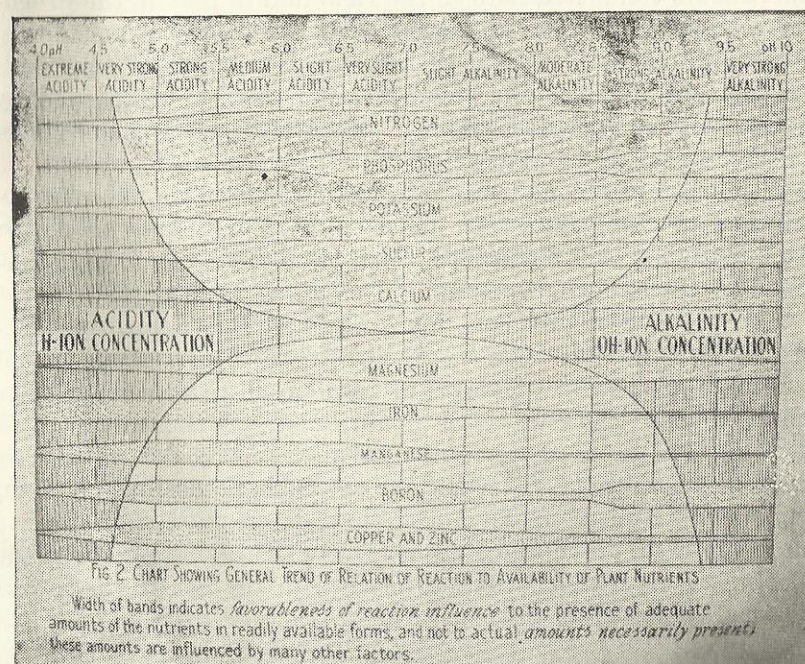 4.0 pH 4.5 5.0 5.5 6.0 6.5 7.0 7.5 8.0 8.5 9.0 9.5 pH 10
EXTREME ACIDITY VERY STRONG ACIDITY STRONG ACIDITY MEDIUM ACIDITY SLIGHT ACIDITY VERY SLIGHT ACIDITY SLIGHT ALKALINITY MODERATE ALKALINITY STRONG ALKALINITY VERY STRONG ALKALINITY
NITROGEN
PHOSPHORUS
POTASSIUM
SULFUR
CALCIUM
ACIDITY
H-ION CONCENTRATION
ALKALINITY
OH-ION CONCENTRATION
MAGNESIUM
IRON
MANGANESE
BORON
COPPER AND ZINC
FIG 2. CHART SHOWING GENERAL TREND OF RELATION OF REACTION TO AVAILABILITY OF PLANT NUTRIENTS
Width of bands indicates favorableness of reaction influence to the presence of adequate
amounts of the nutrients in readily available forms, and not to actual amounts necessarily present;
these amounts are influenced by many other factors.